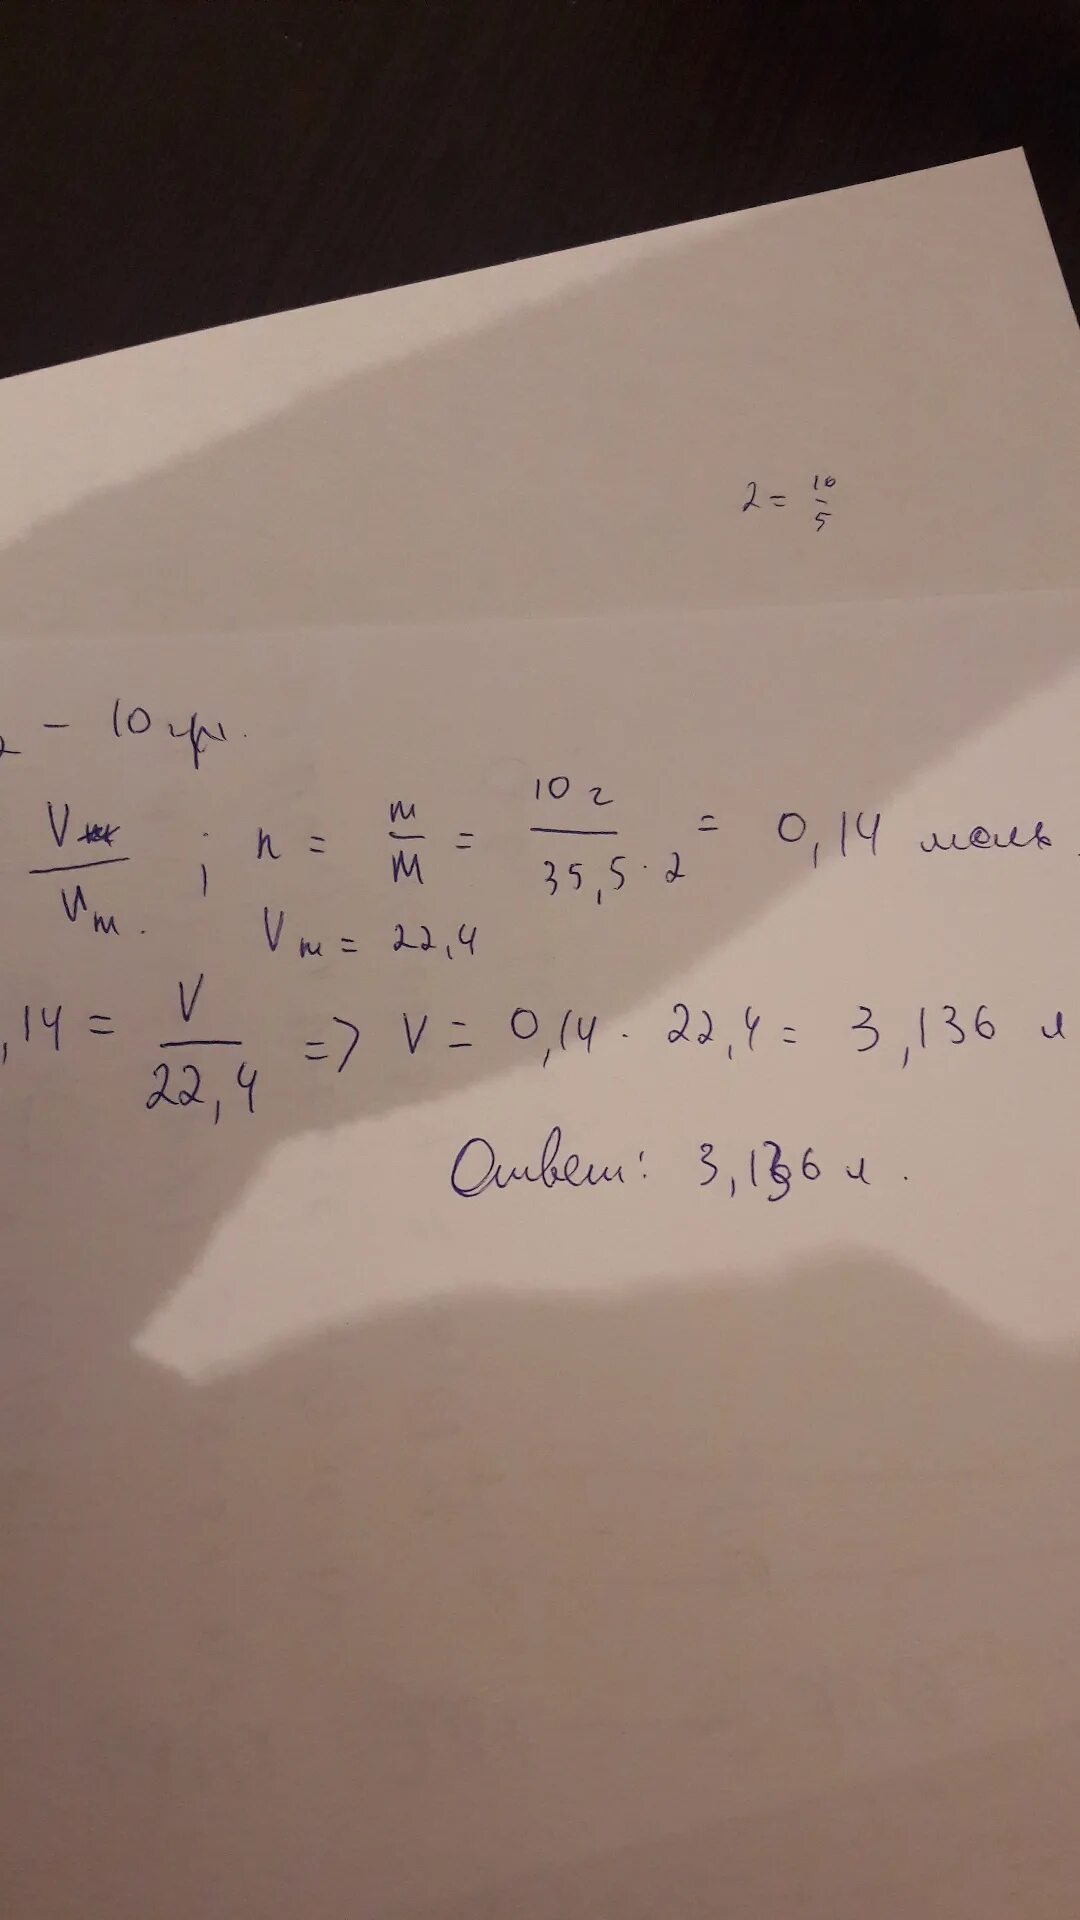 2 = 10/5
2 - 10 гр.
V/Vm ; n = m/M = 10 г/35,5 · 2 = 0,14 моль
Vm = 22,4
,14 = V/22,4 => V = 0,14 · 22,4 = 3,136 л
Ответ: 3,136 л.